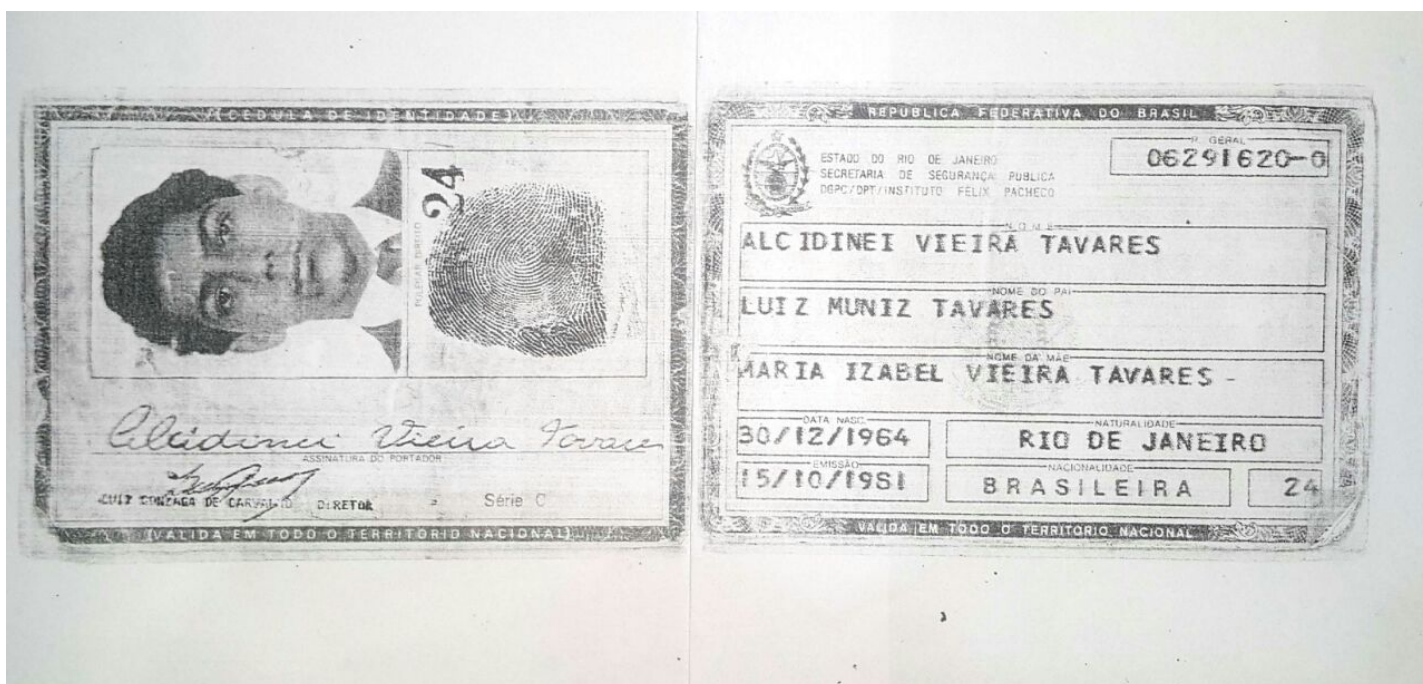 (CEDULA DE IDENTIDADE)
24
POLEGAR DIREITO
Alcidinei Vieira Tavares
ASSINATURA DO PORTADOR
LUIZ GONZAGA DE CARVALHO DIRETOR
Série C
(VALIDA EM TODO O TERRITORIO NACIONAL)
REPUBLICA FEDERATIVA DO BRASIL
R. GERAL
06291620-0
ESTADO DO RIO DE JANEIRO
SECRETARIA DE SEGURANÇA PUBLICA
DGPC/DPT/INSTITUTO FELIX PACHECO
NOME
ALCIDINEI VIEIRA TAVARES
NOME DO PAI
LUIZ MUNIZ TAVARES
NOME DA MÃE
MARIA IZABEL VIEIRA TAVARES -
DATA NASC.
30/12/1964
NATURALIDADE
RIO DE JANEIRO
EMISSÃO
15/10/1981
NACIONALIDADE
BRASILEIRA
24
VALIDA EM TODO O TERRITORIO NACIONAL